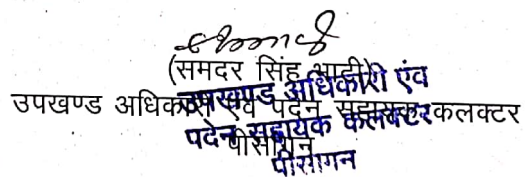 (समदर सिंह भाटी)
उपखण्ड अधिकारी एवं पदेन सहायक कलक्टर
पीसांगन
उपखण्ड अधिकारी एंव
पदेन सहायक कलक्टर
पीसांगन